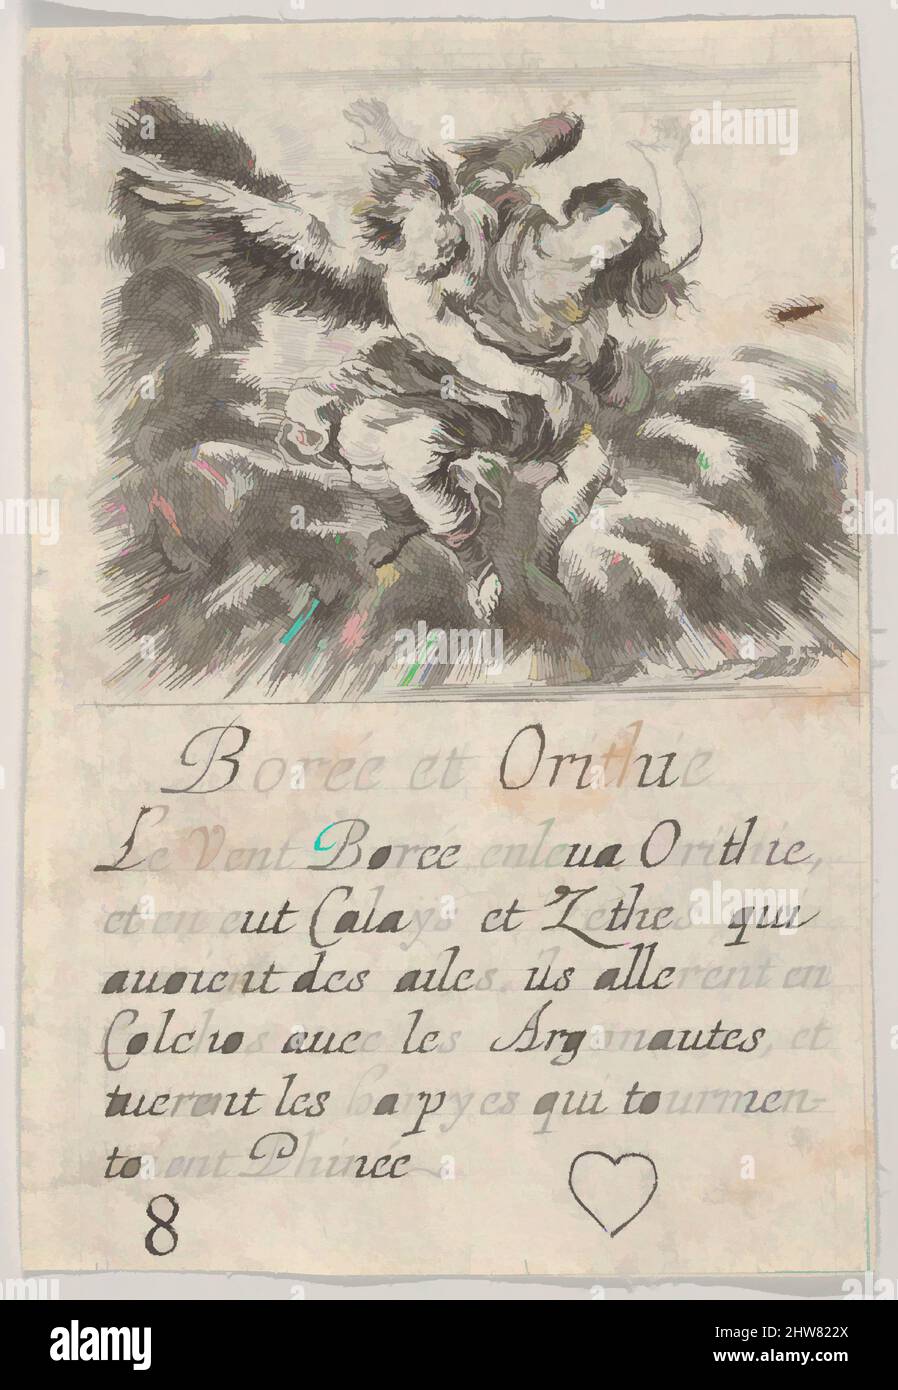 Borée et Orithie
Le Vent Borée enleua Orithie,
et en eut Calays et Zethes qui
auoient des ailes. ils allerent en
Colchos auec les Argonautes, et
tuerent les harpyes qui tourmen-
toient Phinée
8
alamy
Image ID: 2HW822X
www.alamy.com